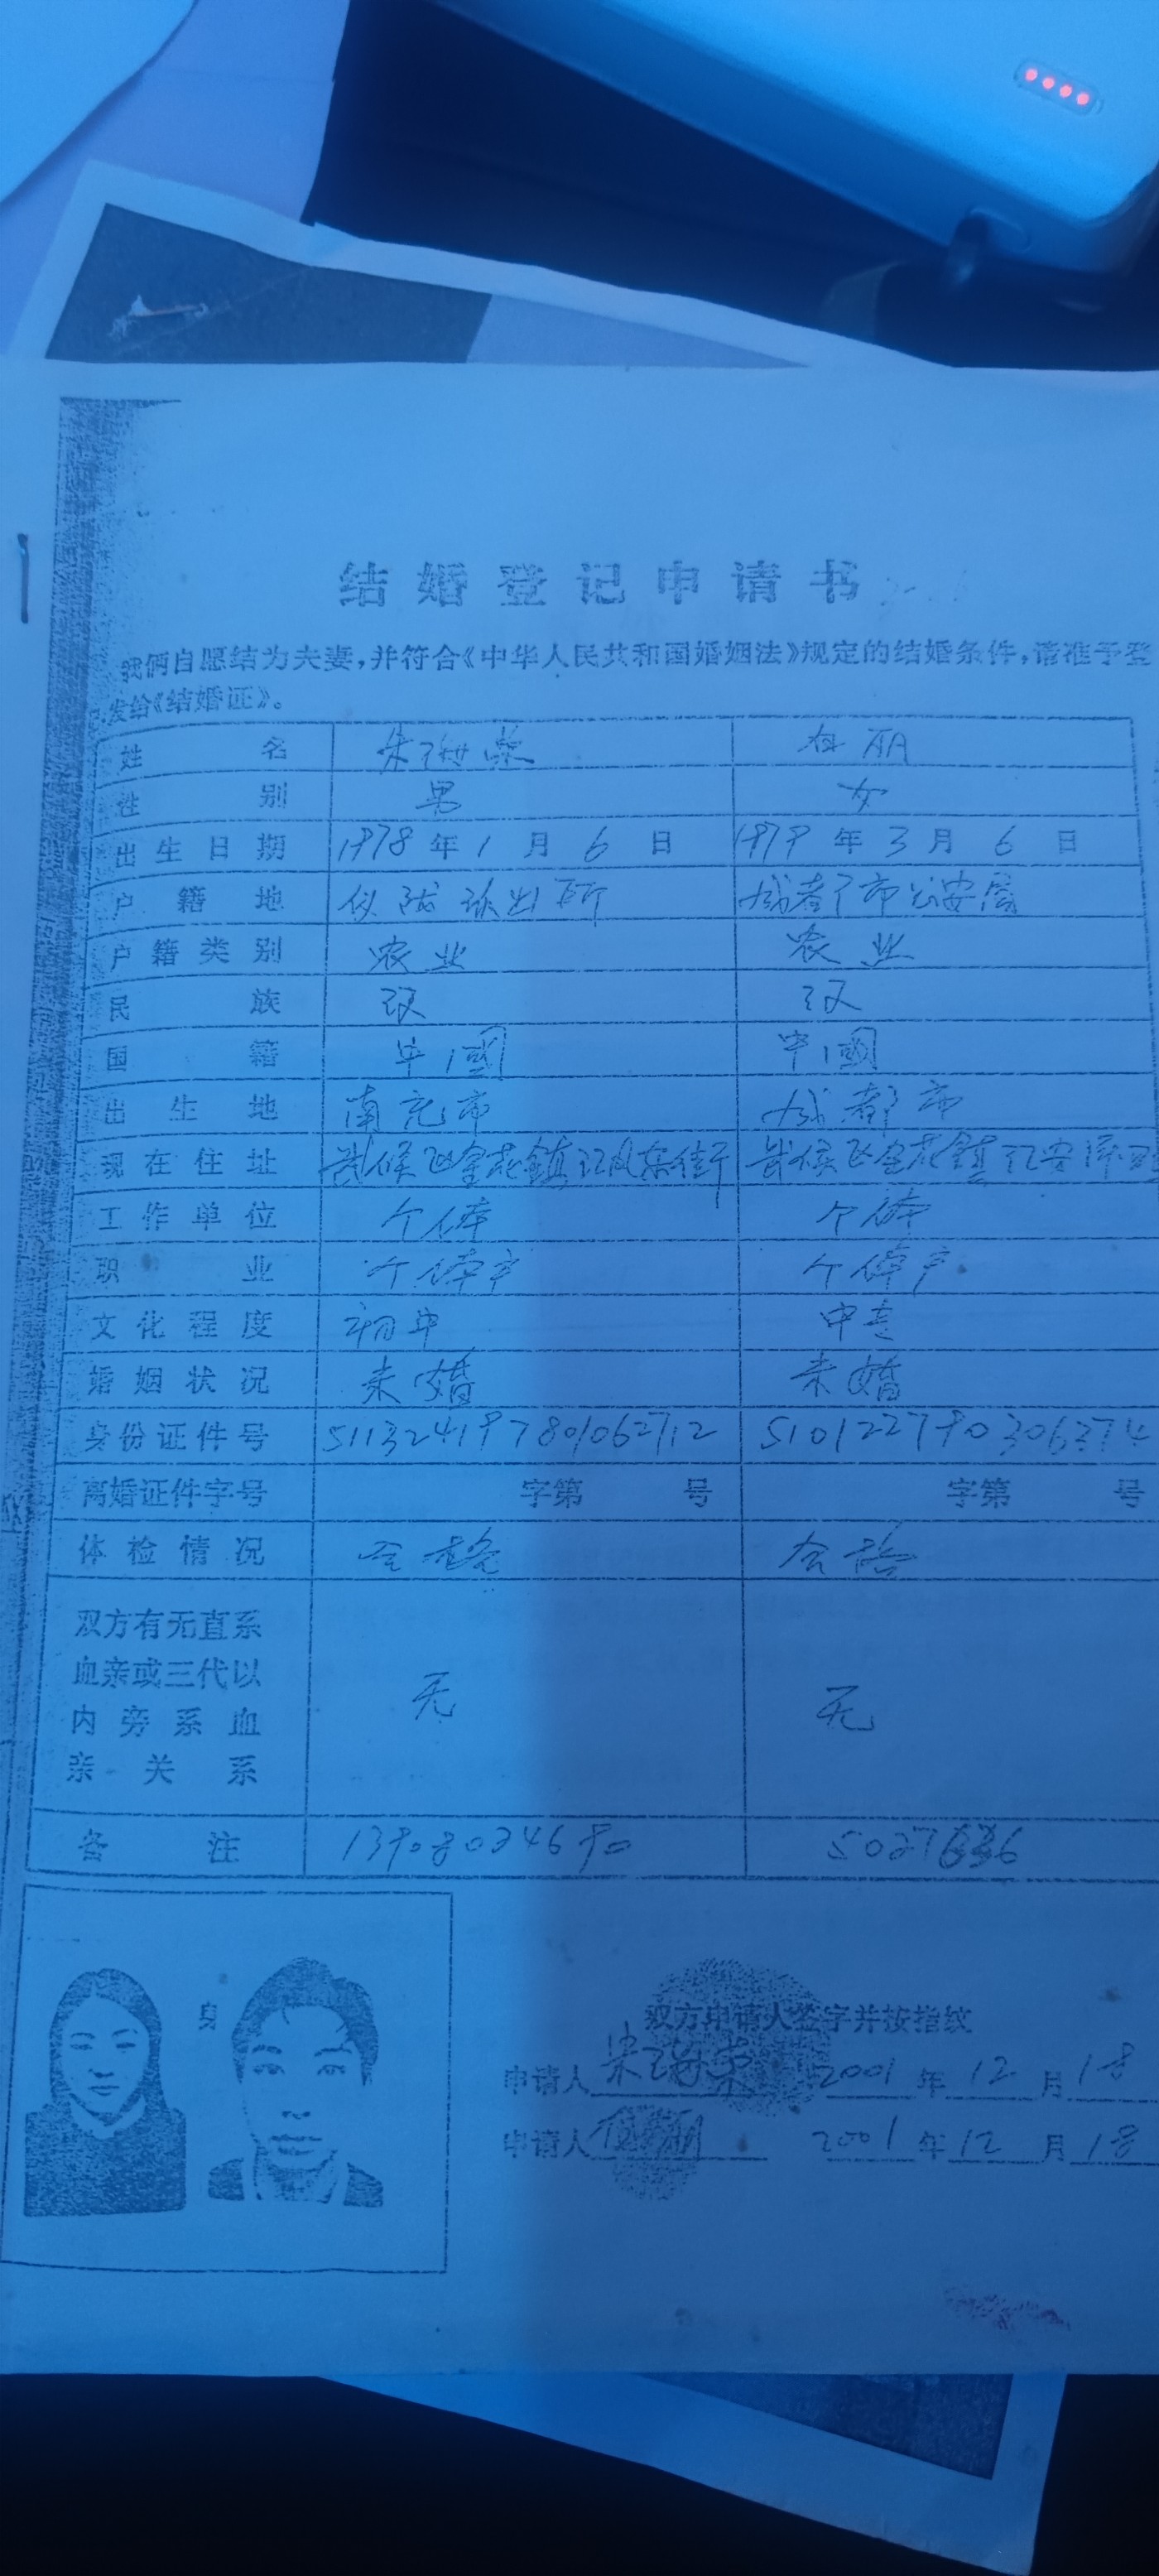 结婚登记申请书
我俩自愿结为夫妻,并符合《中华人民共和国婚姻法》规定的结婚条件,请准予登
发给《结婚证》。
姓名 朱 丽
性别 男 女
出生日期 1978年1月6日 1979年3月6日
户籍地 派出所 成都市公安局
户籍类别 农业 农业
民族 汉 汉
国籍 中國 中國
出生地 南充市 成都市
现在住址 武侯区金花鎮江 东街 武侯区金花鎮江安
工作单位 个体 个体
职业 个体户 个体户
文化程度 初中 中专
婚姻状况 未婚 未婚
身份证件号 511324197801062712
离婚证件字号 字第 号 字第 号
体检情况 合格 合格
双方有无直系
血亲或三代以
内旁系血
亲关系
无 无
备注 13908034690
双方申请人签字并按指纹
申请人 朱 2001年12月18
申请人 2001年12月18